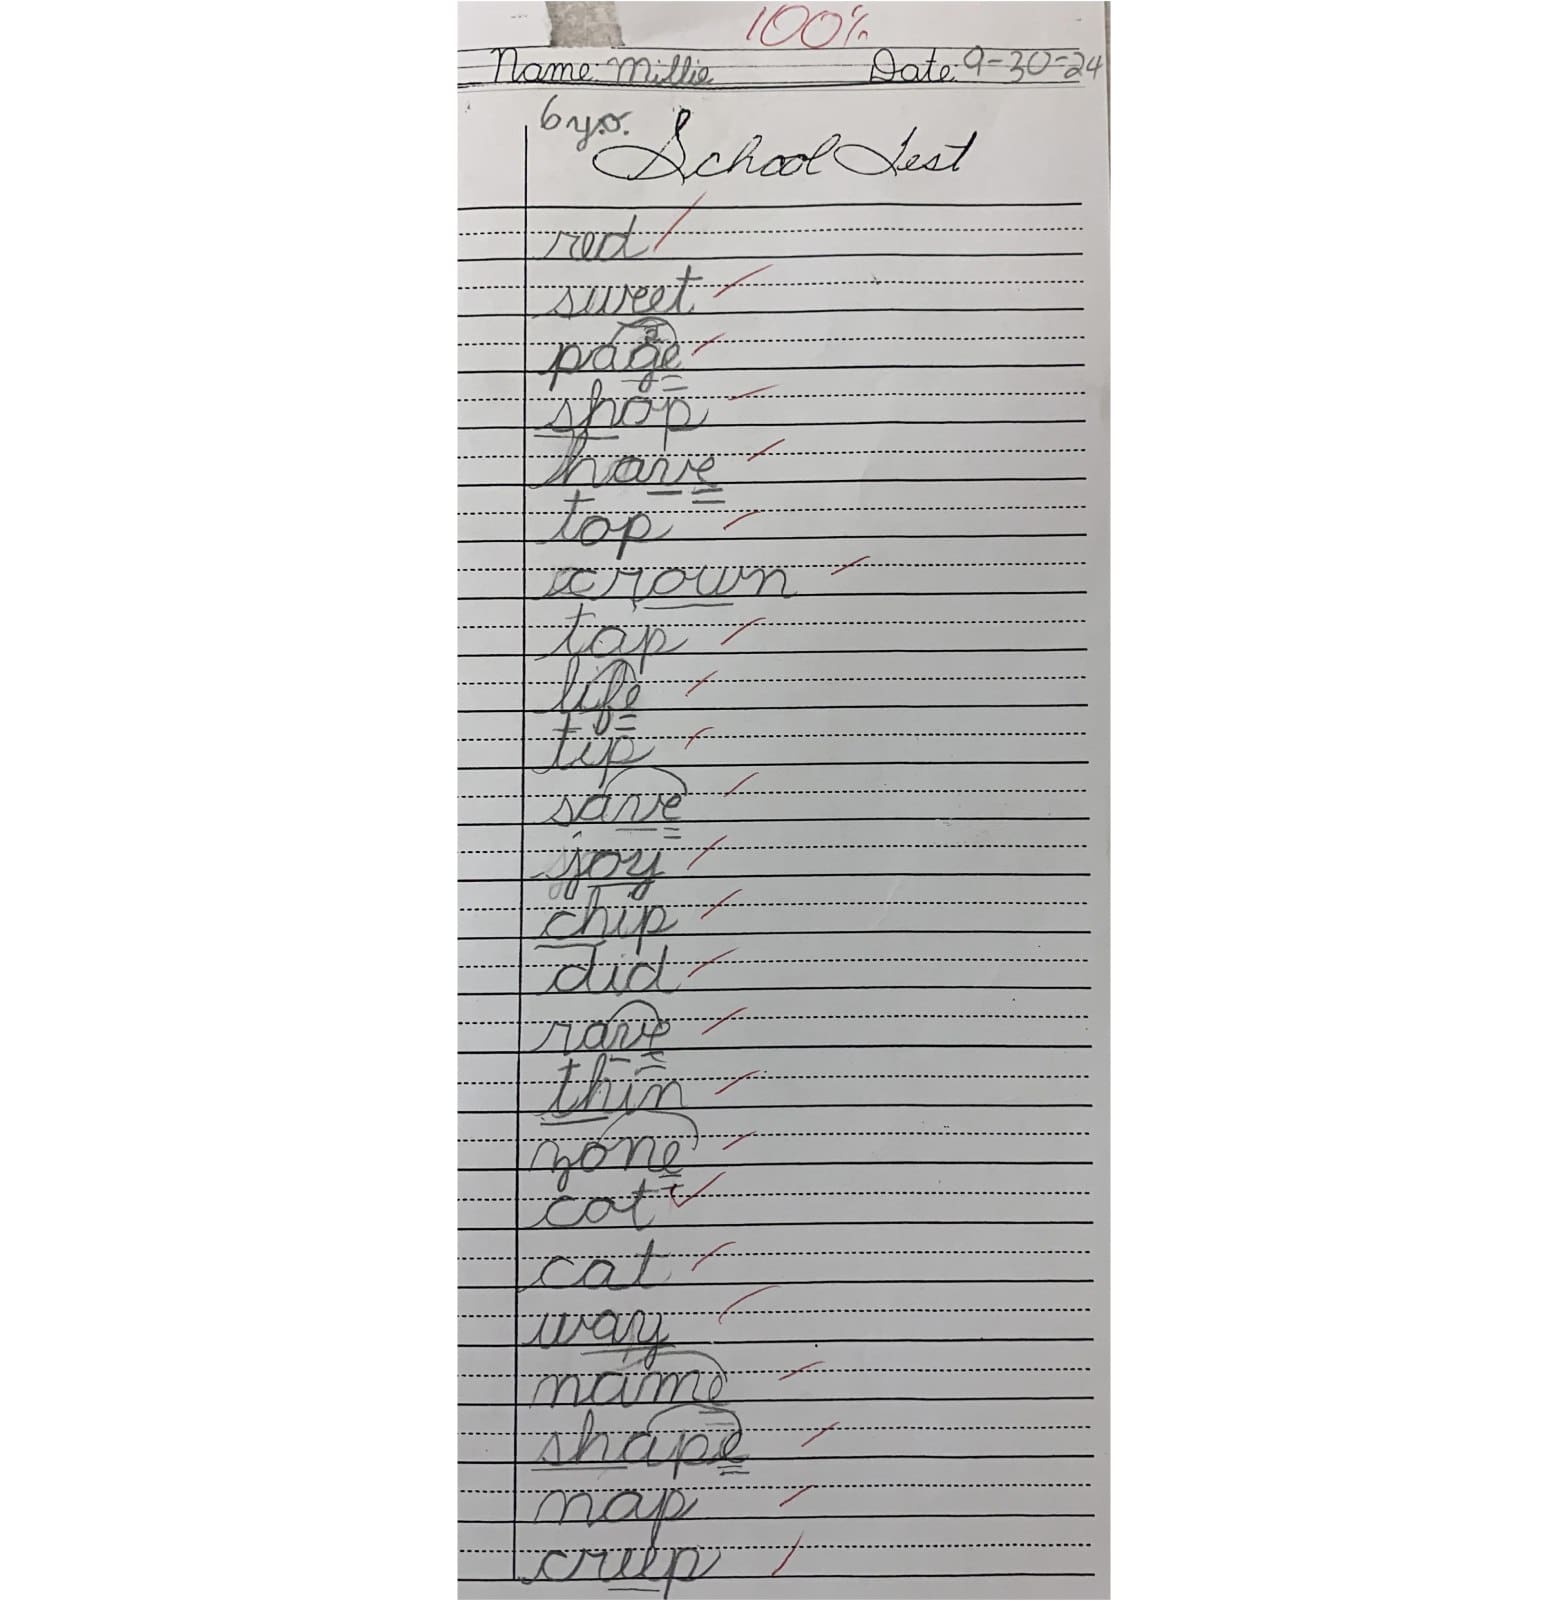 100%
Name: Millie Date: 9-30-24
6 y.o.
School Test
red
sweet
page
shop
have
top
crown
tap
life
tip
save
joy
chip
did
rave
thin
zone
cot
cat
way
name
shape
nap
creep